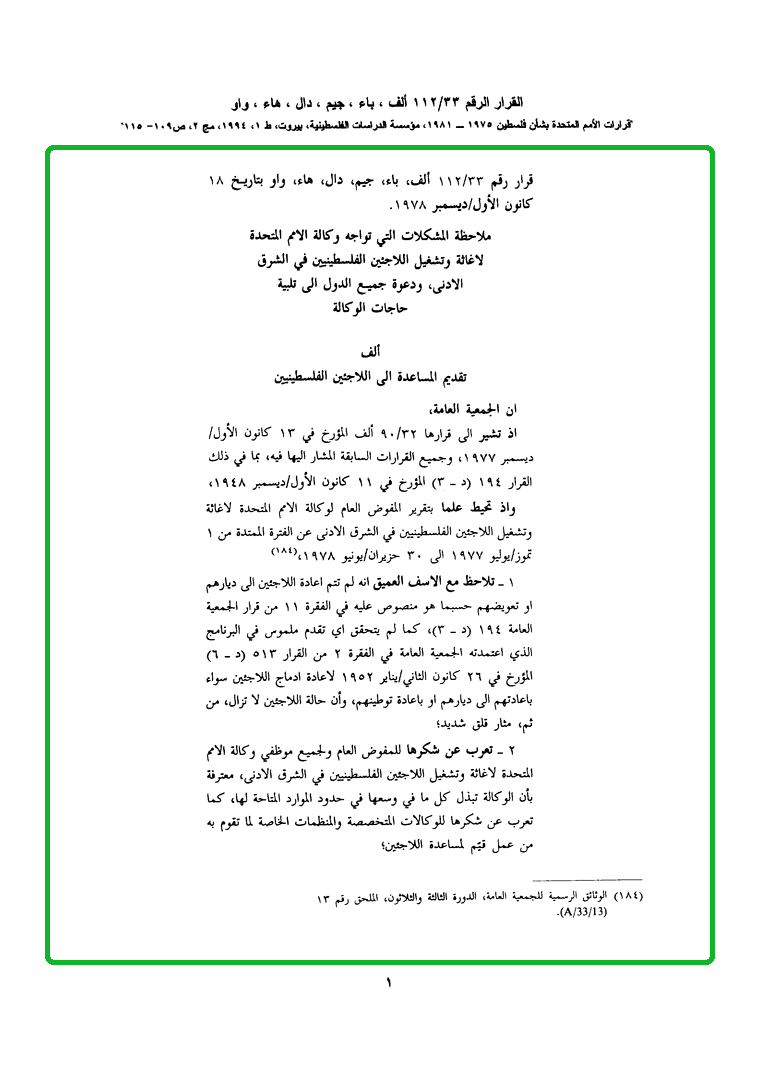 القرار الرقم ١١٢/٣٣ ألف ، باء ، جيم ، دال ، هاء ، واو
"قرارات الأمم المتحدة بشأن فلسطين ١٩٧٥ – ١٩٨١، مؤسسة الدراسات الفلسطينية، بيروت، ط ١، ١٩٩٤، مج ٢، ص١٠٩– ١١٥"
قرار رقم ١١٢/٣٣ ألف، باء، جيم، دال، هاء، واو بتاريخ ١٨
كانون الأول/ديسمبر ١٩٧٨.
ملاحظة المشكلات التي تواجه وكالة الامم المتحدة
لاغاثة وتشغيل اللاجئين الفلسطينيين في الشرق
الادنى، ودعوة جميع الدول الى تلبية
حاجات الوكالة
ألف
تقديم المساعدة الى اللاجئين الفلسطينيين
ان الجمعية العامة،
اذ تشير الى قرارها ٩٠/٣٢ ألف المؤرخ في ١٣ كانون الأول/
ديسمبر ١٩٧٧، وجميع القرارات السابقة المشار اليها فيه، بما في ذلك
القرار ١٩٤ (د – ٣) المؤرخ في ١١ كانون الأول/ديسمبر ١٩٤٨،
واذ تحيط علما بتقرير المفوض العام لوكالة الامم المتحدة لاغاثة
وتشغيل اللاجئين الفلسطينيين في الشرق الادنى عن الفترة الممتدة من ١
تموز/يوليو ١٩٧٧ الى ٣٠ حزيران/يونيو ١٩٧٨،(١٨٤)
١ – تلاحظ مع الاسف العميق انه لم تتم اعادة اللاجئين الى ديارهم
او تعويضهم حسبما هو منصوص عليه في الفقرة ١١ من قرار الجمعية
العامة ١٩٤ (د – ٣)، كما لم يتحقق اي تقدم ملموس في البرنامج
الذي اعتمدته الجمعية العامة في الفقرة ٢ من القرار ٥١٣ (د – ٦)
المؤرخ في ٢٦ كانون الثاني/يناير ١٩٥٢ لاعادة ادماج اللاجئين سواء
باعادتهم الى ديارهم او باعادة توطينهم، وأن حالة اللاجئين لا تزال، من
ثم، مثار قلق شديد؛
٢ – تعرب عن شكرها للمفوض العام ولجميع موظفي وكالة الامم
المتحدة لاغاثة وتشغيل اللاجئين الفلسطينيين في الشرق الادنى، معترفة
بأن الوكالة تبذل كل ما في وسعها في حدود الموارد المتاحة لها، كما
تعرب عن شكرها للوكالات المتخصصة والمنظمات الخاصة لما تقوم به
من عمل قيّم لمساعدة اللاجئين؛
(١٨٤) الوثائق الرسمية للجمعية العامة، الدورة الثالثة والثلاثون، الملحق رقم ١٣
(A/33/13).
١